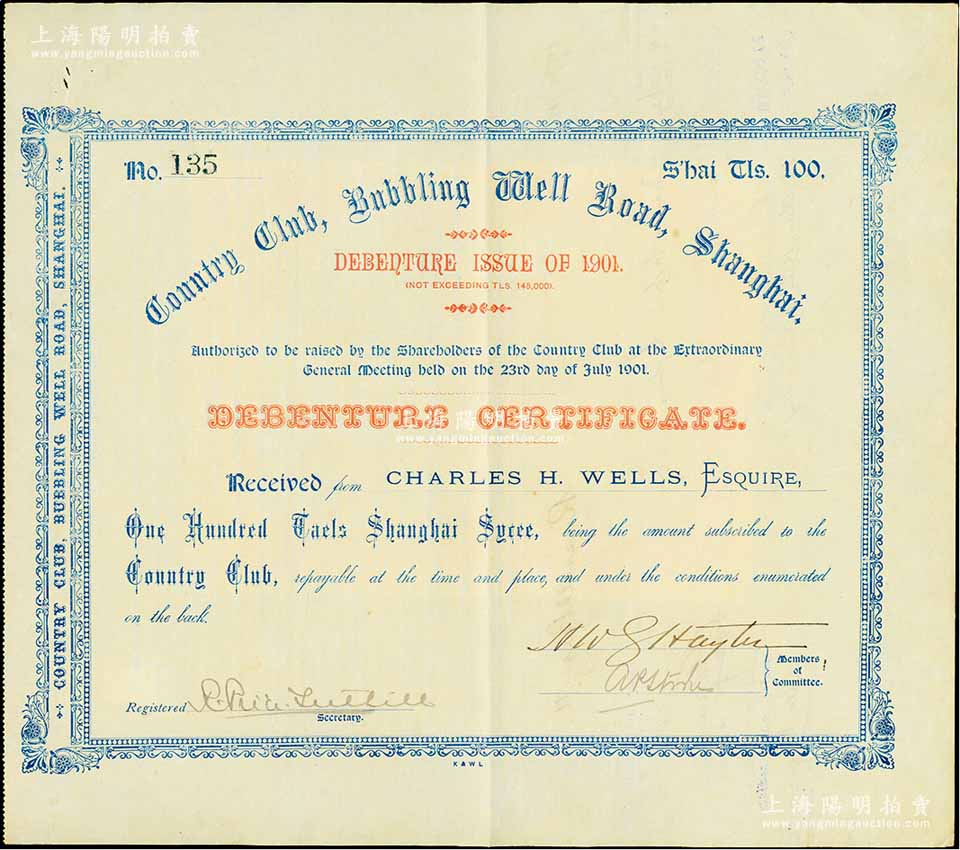 上海陽明拍賣
www.yangmingauction.com
No. 135
S'hai Tls. 100.
Country Club, Bubbling Well Road, Shanghai.
DEBENTURE ISSUE OF 1901.
(NOT EXCEEDING TLS. 145,000).
Authorized to be raised by the Shareholders of the Country Club at the Extraordinary
General Meeting held on the 23rd day of July 1901.
DEBENTURE CERTIFICATE.
上海陽明拍賣
www.yangmingauction.com
Received from CHARLES H. WELLS, ESQUIRE,
One Hundred Taels Shanghai Sycee, being the amount subscribed to the
Country Club, repayable at the time and place, and under the conditions enumerated
on the back.
Members
of
Committee.
Registered
Secretary.
K & W L
COUNTRY CLUB, BUBBLING WELL ROAD, SHANGHAI.
上海陽明拍賣
www.yangmingauction.com